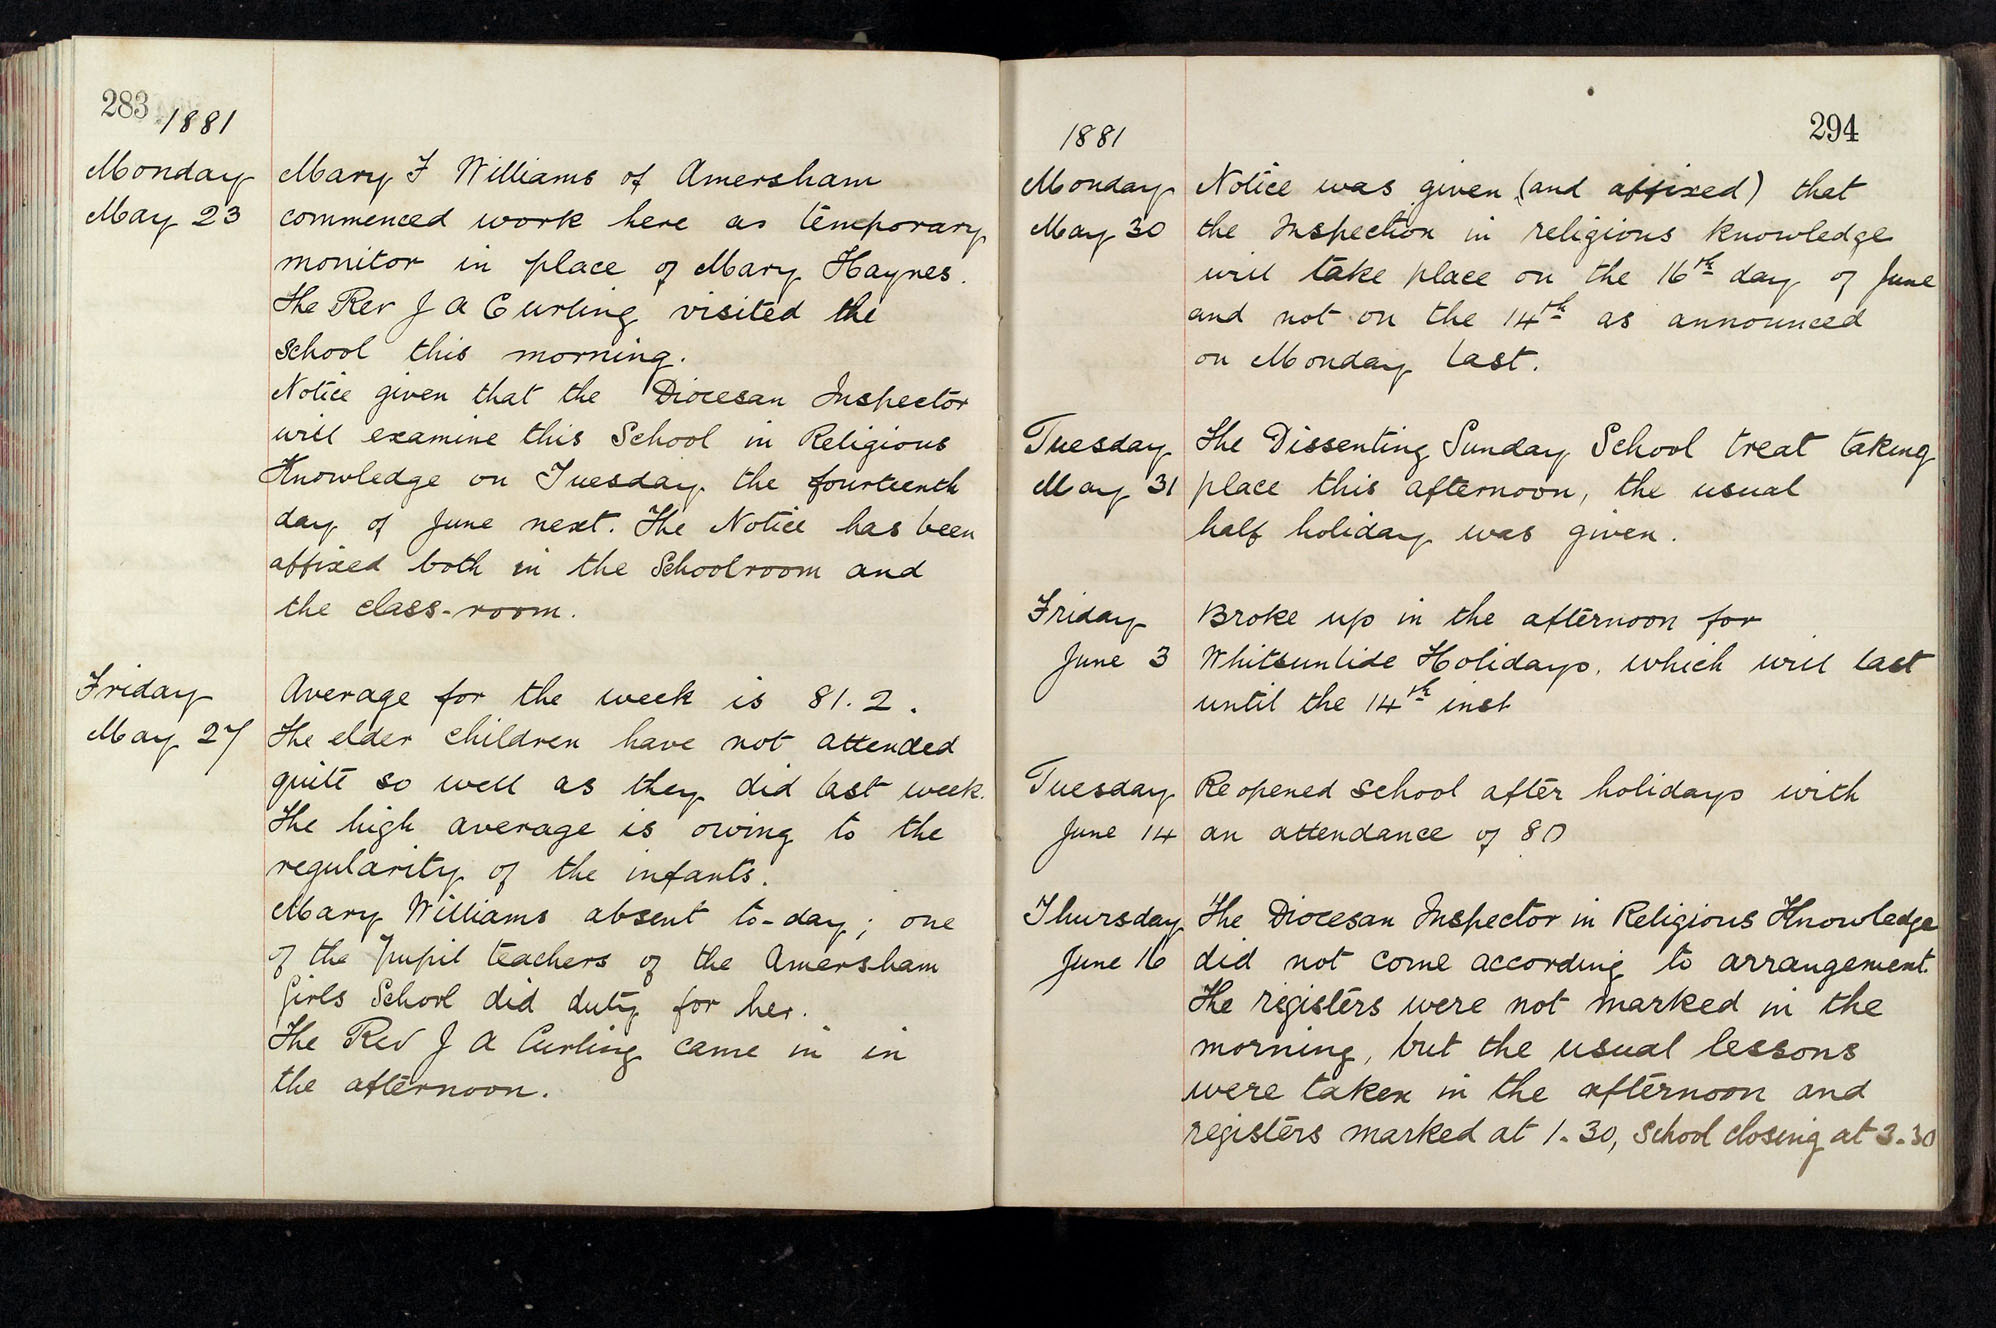 283
1881
Monday
May 23
Mary F Williams of Amersham
commenced work here as temporary
monitor in place of Mary Haynes.
The Rev J A Curling visited the
school this morning.
Notice given that the Diocesan Inspector
will examine this School in Religious
Knowledge on Tuesday the fourteenth
day of June next. The Notice has been
affixed both in the Schoolroom and
the class-room.
Friday
May 27
Average for the week is 81.2.
The elder children have not attended
quite so well as they did last week.
The high average is owing to the
regularity of the infants.
Mary Williams absent to-day; one
of the Pupil teachers of the Amersham
Girls School did duty for her.
The Rev J A Curling came in in
the afternoon.
294
1881
Monday
May 30
Notice was given (and affixed) that
the Inspection in religious knowledge
will take place on the 16th day of June
and not on the 14th as announced
on Monday last.
Tuesday
May 31
The Dissenting Sunday School treat taking
place this afternoon, the usual
half holiday was given.
Friday
June 3
Broke up in the afternoon for
Whitsuntide Holidays, which will last
until the 14th inst
Tuesday
June 14
Reopened school after holidays with
an attendance of 80
Thursday
June 16
The Diocesan Inspector in Religious Knowledge
did not come according to arrangement.
The registers were not marked in the
morning, but the usual lessons
were taken in the afternoon and
registers marked at 1.30, School closing at 3.30